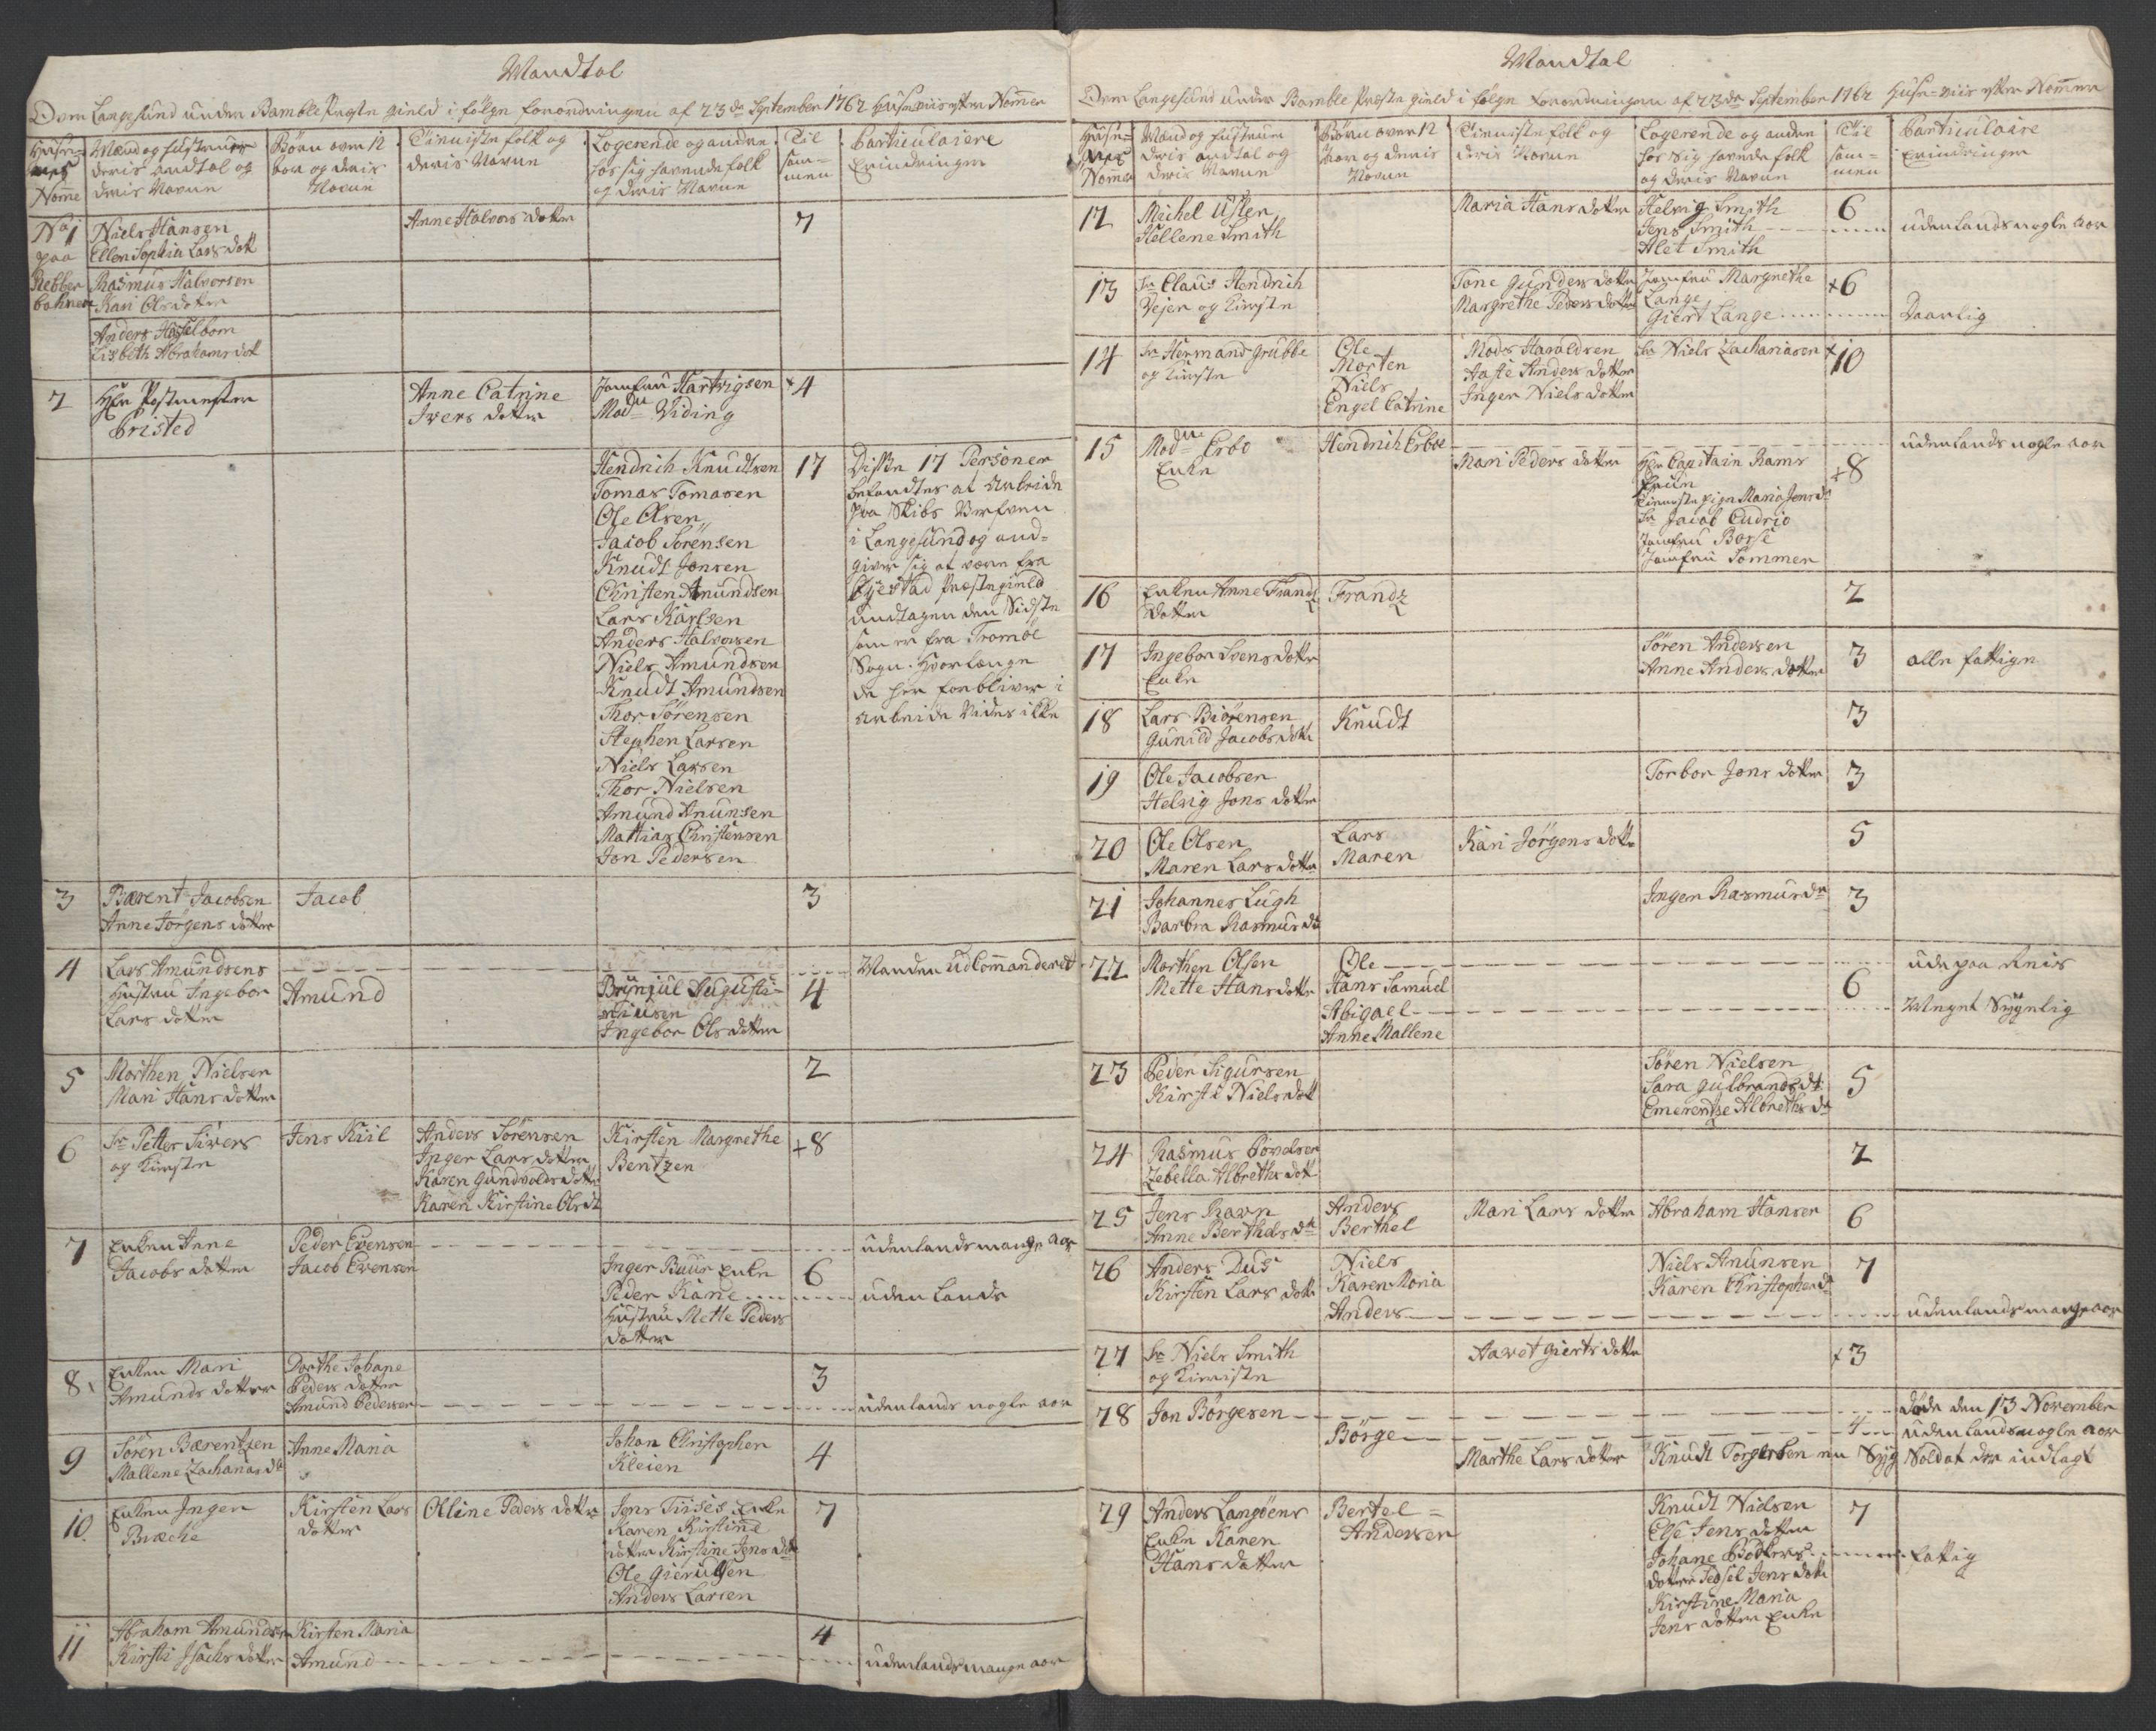 Mandtal
Over Langesund under Bamble Præste gield i følge forordningen af 23de September 1762 Huse-viis efter Nommer
Huse-nes Nomme
Mænd og Hustruer deris andtal og deris Navne
Børn over 12 aar og deris Navne
Tieniste folk og deris Navne
Logerende og andre hos sig havende folk og deris Navne
Til sam-men
Particulaiere Erindringer
No 1 paa Rebber bahnen
Niels Hansen
Ellen Sophia Lars dott
Anne Halvors dotter
7
Rasmus Halvorsen
Kari Ols dotter
Anders Hasselbom
Lisbeth Abrahams dot
2
Hr Postmester
Bristed
Anne Catrine
Ivers dotter
Jomfru Hartvigsen
Mad: Viding
+4
Hendrich Knudtsen
Tomas Tomasen
Ole Olsen
Jacob Sörensen
Knudt Jonsen
Christen Amundsen
Lars Karlsen
Anders Halvorsen
Niels Amundsen
Knudt Amundsen
Thor Sörensen
Stephen Larsen
Niels Larsen
Thor Nielsen
Amund Anunsen
Mattias Christensen
Jon Pedersen
17
Disse 17 Personer
befandtes at Arbeide
paa Skibs Verfven
i Langesund og and-
giver sig at være fra
Gjerstad Præstegield
undtagen den Sidste
som er fra Tromöe
Sogn. Hvorlænge
de her forbliver i
Arbeide Vides ikke
3
Bærent Jacobsen
Anne Jörgens dotter
Jacob
3
4
Lars Amundsens
Hustru Ingebor
Lars dotter
Amund
Brynjul Augusti-
niusen
Ingebor Ols dotter
4
Manden Udcommanderet
5
Morthen Nielsen
Mari Hans dotter
2
6
Sr Petter Sivers
og Kierste
Jens Kiil
Anders Sörensen
Inger Lars dotter
Karen Gundvolds dotter
Karen Kirstine Ols dt
Kirsten Margrethe
Bentzen
+8
7
Enken Anne
Jacobs dotter
Peder Evensen
Jacob Evensen
Inger Buur Enke
Peder Kane
Hustru Mette Peders
dotter
6
udenlands mange aar
uden Lands
8
Enken Mari
Amunds dotter
Dorthe Johane
Peders dotter
Amund Pedersen
3
udenlands nogle aar
9
Sören Bærentzen
Mallene Zacharias dt
Anne Maria
Johan Christopher
Kleien
4
10
Enken Inger
Bræche
Kirsten Lars
dotter
Olline Peders dotter
Jens Tiises Enke
Karen Kirstine
dotter Kirstine Jens dott
Ole Gierulfsen
Anders Larsen
7
11
Abraham Amundsen
Kirsti Isachs dotter
Kirsten Maria
Amund
4
udenlands mange aar
Mandtal
Over Langesund under Bamble Præste gield i følge forordningen af 23de September 1762 Huse-viis efter Nommer
Huse-nes Nommer
Mand og Hustruer deris andtal og deris Navne
Børn over 12 aar og deris Navne
Tieniste folk og deris Navne
Logerende og andre hos sig havende folk og deris Navne
Til sam-men
Particulaire Erindringer
12
Michel Usler
Hellene Smith
Maria Hans dotter
Helvig Smith
Jens Smith
Alet Smith
6
udenlands nogle aar
13
Sr Claus Hendrich
Vejer og Kierste
Tone Gunders dotter
Margrethe Peders dotter
Jomfru Margrethe
Lange
Giert Lange
+6
Daarlig
14
Sr Hermand Grubbe
og Kierste
Ole
Morten
Niels
Engel Catrine
Mads Haraldsen
Aase Anders dotter
Inger Niels dotter
Sr Niels Zachariasen
+10
15
Mad: Erbo
Enke
Hendrich Erboe
Mari Peders dotter
Hr Capitain Rams
Frue
Tieneste pige Maria Jens dr
Sr Jacob Cudrio
Jomfru Borse
Jomfru Sommer
+8
udenlands nogle aar
16
Enken Anne Frandz
Dotter
Frandz
2
17
Ingebor Svens dotter
Enke
Sören Andersen
Anne Anders dotter
3
alle fattige
18
Lars Biörensen
Gunild Jacobs dott
Knudt
3
19
Ole Jacobsen
Helvig Jons dotter
Torbor Jons dotter
3
20
Ole Olsen
Maren Lars dotter
Lars
Maren
Kari Jörgens dotter
5
21
Johannes Lugh
Barbra Rasmus dr
Inger Rasmus dr
3
22
Morthen Olsen
Mette Hans dotter
Ole
Hans Samuel
Abigael
Anne Mallene
6
ude paa Reis
Meget Sygelig
23
Peder Sigursen
Kirsti Niels dott
Sören Nielsen
Sara Gulbrands dt
Emerentze Albreths dr
5
24
Rasmus Povelsen
Zebella Albreths dott
2
25
Jens Ravn
Anne Berthels dr
Anders
Berthel
Mari Lars dotter
Abraham Hansen
6
26
Anders Dus
Kirsten Lars dott
Niels
Karen Maria
Anders
Niels Anunsen
Karen Christophers dr
7
udenlands mange aar
27
Sr Niels Smith
og Kieriste
Aaret Gierts dotter
+3
28
Jon Börgesen
Börge
Marthe Lars dotter
Knudt Torgersen en Syg Soldat der indlagt
4
döde den 13 November
udenlands nogle aar
29
Anders Langöens
Enke Karen
Hans dotter
Bertel
Andersen
Knudt Nielsen
Else Jens dotter
Johane Bödkers
dotter Sedsel Jens dott
Kirstine Maria
Jens dotter Enke
7
fattig